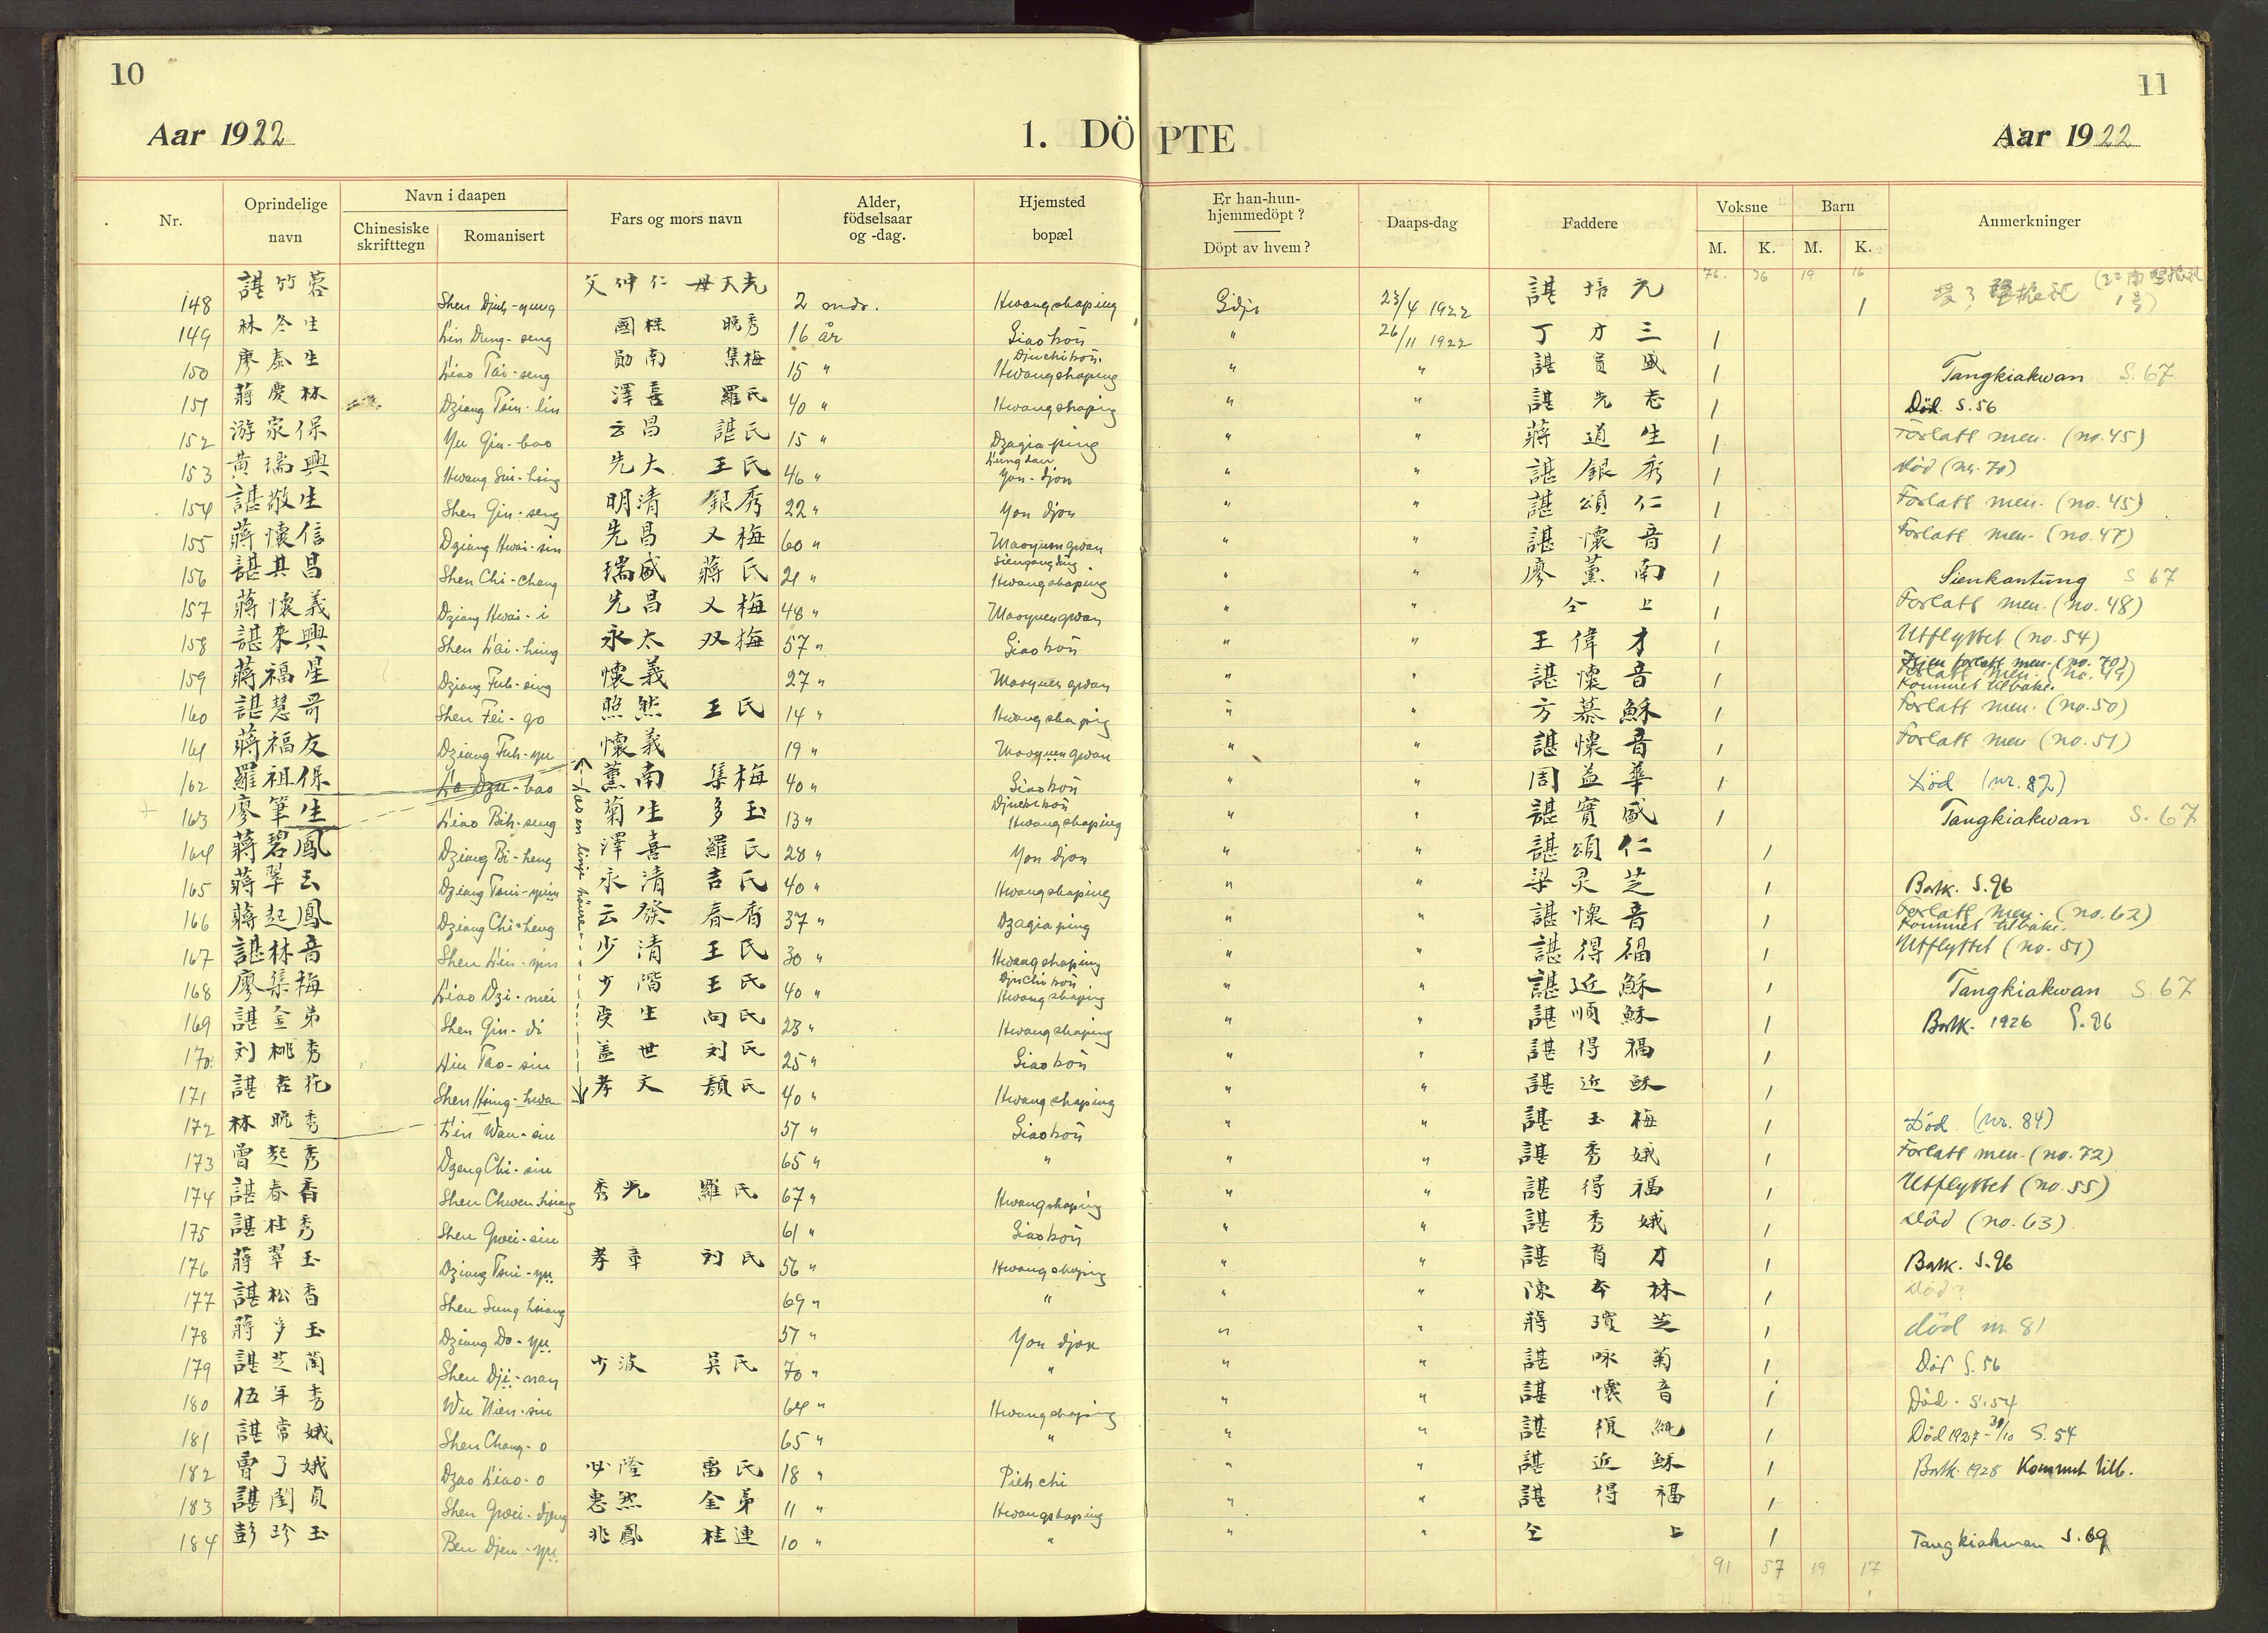 10
11
Aar 1922
1. DÖPTE
Aar 1922
Nr.
Oprindelige navn
Navn i daapen
Chinesiske skrifttegn
Romanisert
Fars og mors navn
Alder, födselsaar og -dag.
Hjemsted bopæl
Er han-hun-hjemmedöpt?
Döpt av hvem?
Daaps-dag
Faddere
Voksne
Barn
M. K. M. K.
Anmerkninger
76. 36 19 16
148 諶竹蓉 Shen Djuh-yung 父仲仁 2 mdr. Hwangshaping 23/4 1922 諶培元 1
149 林冬生 Lin Dung-seng 國樑 晚秀 16 år Giaokoü " 26/11 1922 丁才三 1
150 廖泰生 Liao Tai-seng 勛南 集梅 15 " Djuchikoü. Hwangshaping " " 諶賓盛 1 Tangkiakwan S. 67
151 蔣慶林 Dziang Tsin-lin 澤喜 羅氏 40 " Hwangshaping " " 諶先志 1 Död. S. 56
152 游家保 Yu Gia-bao 云昌 諶氏 15 " Dzagiaping " " 蔣道生 1 Forlatt men. (no. 45)
153 黃瑞興 Hwang Sui-hsing 先大 王氏 46 " Yon-djou " " 諶銀秀 1 död (nr. 70)
154 諶敬生 Shen Gin-seng 明清 銀秀 22 " Yon djou " " 諶頌仁 1 Forlatt men. (no. 45)
155 蔣懷信 Dziang Hwai-sin 先昌 又梅 60 " Maoyuengwan " " 諶懷音 1 Forlatt men. (no. 47)
156 諶其昌 Shen Chi-chang 瑞盛 蔣氏 21 " Hwangshaping " " 廖薰南 1 Sienkantung S 67
157 蔣懷義 Dziang Hwai-i 先昌 又梅 48 " Maoyuengwan " " 仝上 1 Forlatt men. (no. 48)
158 諶來興 Shen Lai-hsing 永太 双梅 57 " Giaokoü " " 王偉才 1 Utflyttet (no. 54)
159 蔣福星 Dziang Fuh-sing 懷義 27 " Maoyuengwan " " 諶懷音 1 Igjen forlatt men. (no. 70) Forlatt men. (no. 49) Kommet tilbake.
160 諶慧哥 Shen Fei-go 照然 王氏 14 " Hwangshaping " " 方慕穌 1 Forlatt men. (no. 50)
161 蔣福友 Dziang Fuh-yu 懷義 19 " Maoyuengwan " " 諶懷音 1 Forlatt men (no. 51)
162 羅祖保 Lo Dzu-bao 薰南 集梅 40 " Giaokoü " " 周益華 1 Död (nr. 82)
163 廖筆生 Liao Bih-seng 菊生 多玉 13 " Djuchikoü Hwangshaping " " 諶賓盛 1 Tangkiakwan S. 67
Läs en linje höiere
164 蔣碧鳳 Dziang Bi-heng 澤喜 羅氏 28 " Yon djou " " 諶頌仁 1
165 蔣翠云 Dziang Tsui-yüin 永清 吉氏 40 " Hwangshaping " " 梁灵芝 1 Bortk. S. 96
166 蔣起鳳 Dziang Chi-heng 云發 春香 37 " Dzagiaping " " 諶懷音 1 Forlatt men. (no. 62) Kommet tilbake.
167 諶林音 Shen Lin-yin 少清 王氏 30 " Hwangshaping " " 諶得福 1 Utflyttet (no. 51)
168 廖集梅 Liao Dzi-mei 少階 王氏 40 " Djuchikoü Hwangshaping " " 諶近穌 1 Tangkiakwan S. 67
169 諶金弟 Shen Gin-di 庚生 向氏 23 " Hwangshaping " " 諶順穌 1 Bortk. 1926 S. 96
170 刘桃秀 Liu Tao-siu 蓋世 刘氏 25 " Giaokoü " " 諶得福 1
171 諶杏花 Shen Hsing-hwa 孝文 顏氏 40 " Hwangshaping " " 諶近穌 1
172 林晚秀 Lin Wan-siu 57 " Giaokoü " " 諶玉梅 1 Död. (nr. 84)
173 曾起秀 Dzeng Chi-siu 65 " " " " 諶秀娥 1 Forlatt men. (no. 72)
174 諶春香 Shen Chwen hsiang 秀光 羅氏 67 " Hwangshaping " " 諶得福 1 Utflyttet (no. 55)
175 諶桂秀 Shen Gwei-siu 61 " Giaokoü " " 諶秀娥 1 död (no. 63)
176 蔣翠玉 Dziang Tsui-yu 孝章 刘氏 56 " Hwangshaping " " 諶育才 1 Bortk. S. 96
177 諶松香 Shen Sung hsiang 69 " " " " 陳本林 1 död?
178 蔣多玉 Dziang Do-yu 57 " Yon djou " " 蔣瓊芝 1 död nr. 81
179 諶芝蘭 Shen Dji-nan 少波 吳氏 70 " " " " 諶咏菊 1 Död S. 56
180 伍年秀 Wu Nien-siu 64 " Hwangshaping " " 諶懷音 1 Död. S. 54
181 諶常娥 Shen Chang-o 65 " " " " 諶復純 1 Död 1927-31/10 S. 54
182 曹了娥 Dzao Liao-o 必隆 雷氏 18 " Pieh chi " " 諶近穌 1 Bortk. 1928 Kommet tilb.
183 諶閨貞 Shen Gwei-djeng 惠然 金弟 11 " Hwangshaping " " 諶得福 1
184 彭珍玉 Ben Djen-yu 兆鳳 桂連 10 " " " " 仝上 1 Tangkiakwan S. 69
91 57 19 17